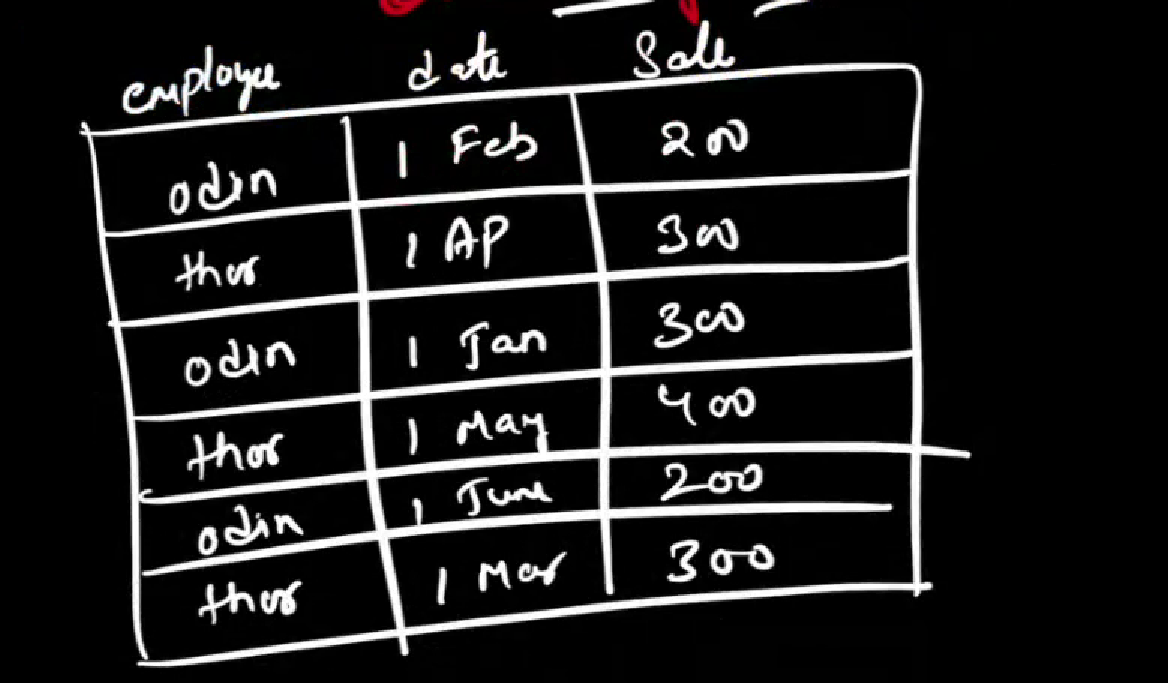 employee date Sale
odin 1 Feb 200
thor 1 AP 300
odin 1 Jan 300
thor 1 May 400
odin 1 June 200
thor 1 Mar 300